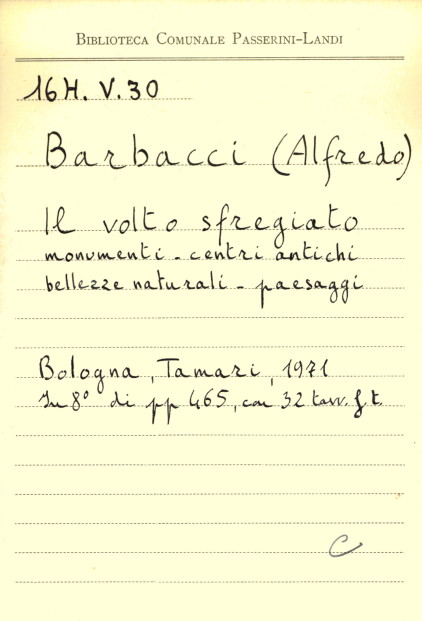 BIBLIOTECA COMUNALE PASSERINI-LANDI
16 H. V. 30
Barbacci (Alfredo)
Il volto sfregiato
monumenti - centri antichi
bellezze naturali - paesaggi
Bologna, Tamari, 1971
In 8° di pp 465, con 32 tavv. f. t.
C